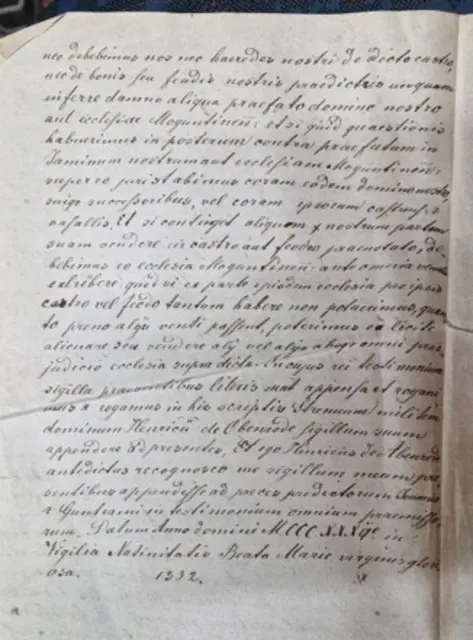 nec debebimus nos nec haeredes nostri de dicto castro,
nec de bonis seu feudis nostris praedictis unquam
inferre damna aliqua praefato domino nostro
aut ecclesiae Moguntinen: et si quid quaestionis
habuerimus in posterum contra praefatum
Dominum nostrum aut ecclesiam Moguntinen:
super eo juri stabimus coram eodem domino nostro,
suis successoribus, vel coram ipsorum castrens:
vasallis, Et si continget aliquem nostrum partem
suam vendere in castro aut feodo praenotato, de-
bebimus ea ecclesia Moguntinen: ante omnia
exhibere: quod si ex parte ejusdem ecclesia pro ipsis
castro vel feodo tantum habere non poterimus, quan
to pretio alijs vendi possent, poterimus ea licite
alienare seu vendere alij vel alijs absq omni prae-
judicio ecclesia supra dicta. In cujus rei testimonium
sigilla praesentibus literis sunt appensa et rogavi
mus rogamus in his scriptis strenuum militem
dominum Henricum de Obenrode sigillum suum
appendere Et ego Hinricus de
antedictus recognosco me sigillum meum prae-
sentibus appendisse ad preces predictorum
Guntrami in testimonium omnium praemisso-
rum. Datum Anno domini MCCCXXX in
Vigilia Nativitatis Beata Marie virginis glori-
osa. 1332.